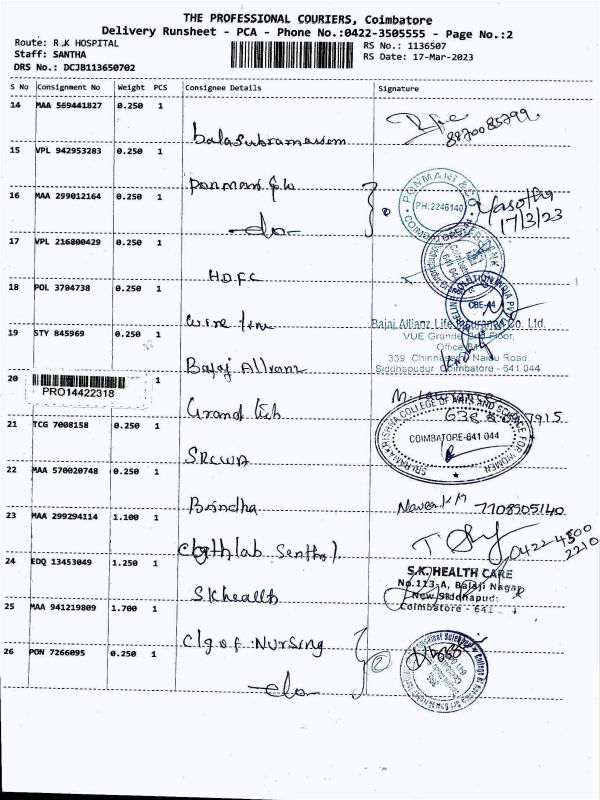 THE PROFESSIONAL COURIERS, Coimbatore
Delivery Runsheet - PCA - Phone No.:0422-3505555 - Page No.:2
Route: R.K HOSPITAL
Staff: SANTHA
DRS No.: DCJB113650702
RS No.: 1136507
RS Date: 17-Mar-2023
S No Consignment No Weight PCS Consignee Details Signature
14 MAA 569441827 0.250 1
balasubramaniam
8870085799
15 VPL 942953283 0.250 1
Ponmani & co
16 MAA 299012164 0.250 1
-do-
PONMANI & CO
PH:2246140
COIMBATORE
Yasotha
17/3/23
17 VPL 216800429 0.250 1
HDFC
18 POL 3704738 0.250 1
wire line
CBE-44
19 STY 845969 0.250 1
Bajaj Allianz
Bajaj Allianz Life Insurance Co. Ltd.
VUE Grande 2nd Floor,
Office
339 Chinnaswamy Naidu Road
Siddhapudur Coimbatore - 641 044
20 PRO14422318 1
Grand tech
21 TCG 7008158 0.250 1
SRCWA
SRI RAMAKRISHNA COLLEGE OF ARTS AND SCIENCE FOR WOMEN
COIMBATORE-641 044
22 MAA 570020748 0.250 1
Brindha
Naveen KM 7708905140
23 MAA 299294114 1.100 1
0422-4500
2210
24 EDQ 13453049 1.250 1
SK health
S.K. HEALTH CARE
No.113-A, Balaji Nagar
New Siddhapud
Coimbatore - 641
25 MAA 941219809 1.700 1
Clg of Nursing
26 PON 7266095 0.250 1
-do-
2